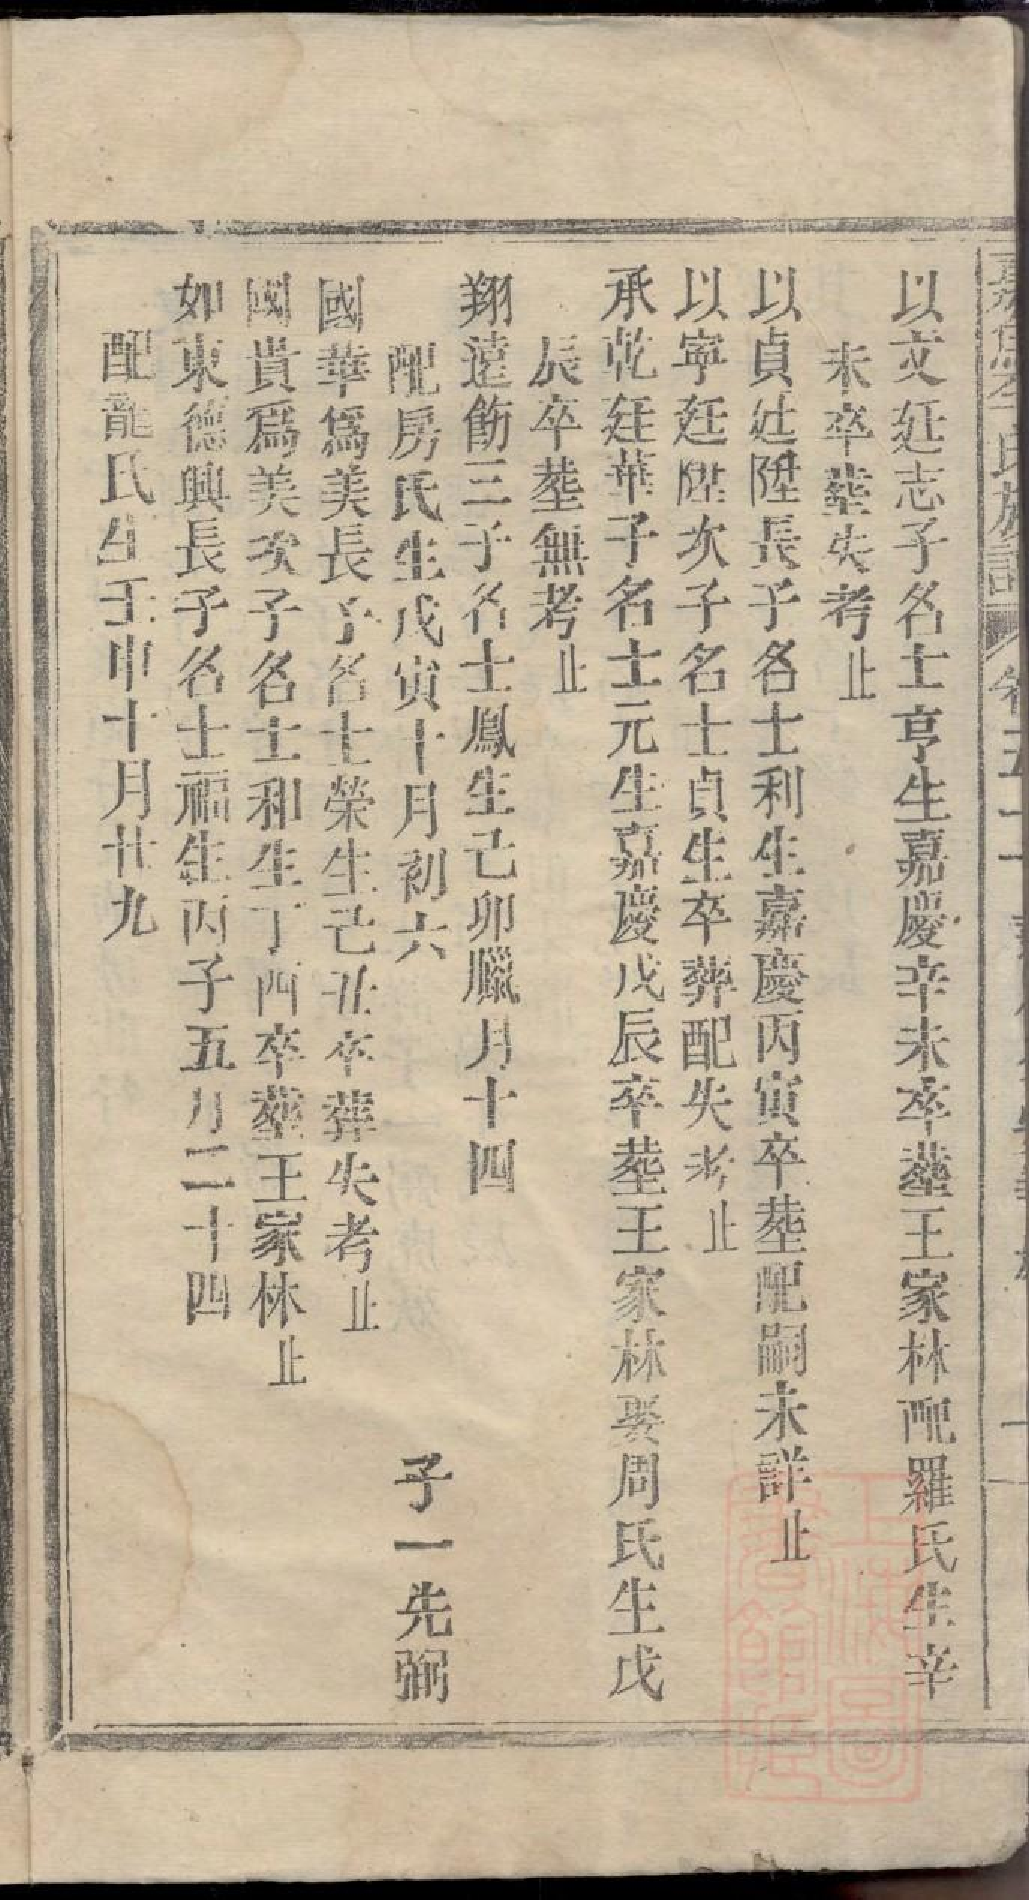 以文廷志子名士亨生嘉慶辛未卒塟王家林配羅氏生辛
未卒塟失考止
以貞廷陞長子名士利生嘉慶丙寅卒塟配嗣未詳止
以寧廷陞次子名士貞生卒葬配失考止
承乾廷華子名士元生嘉慶戊辰卒塟王家林娶周氏生戊
辰卒塟無考止
翔遠飭三子名士鳳生己卯臘月十四
配房氏生戊寅十月初六 子一先弼
國華爲美長子名士榮生己丑卒葬失考止
國貴爲美次子名士和生丁酉卒塟王家林止
如東德興長子名士福生丙子五月二十四
配龍氏生壬申十月廿九
上海圖書館藏